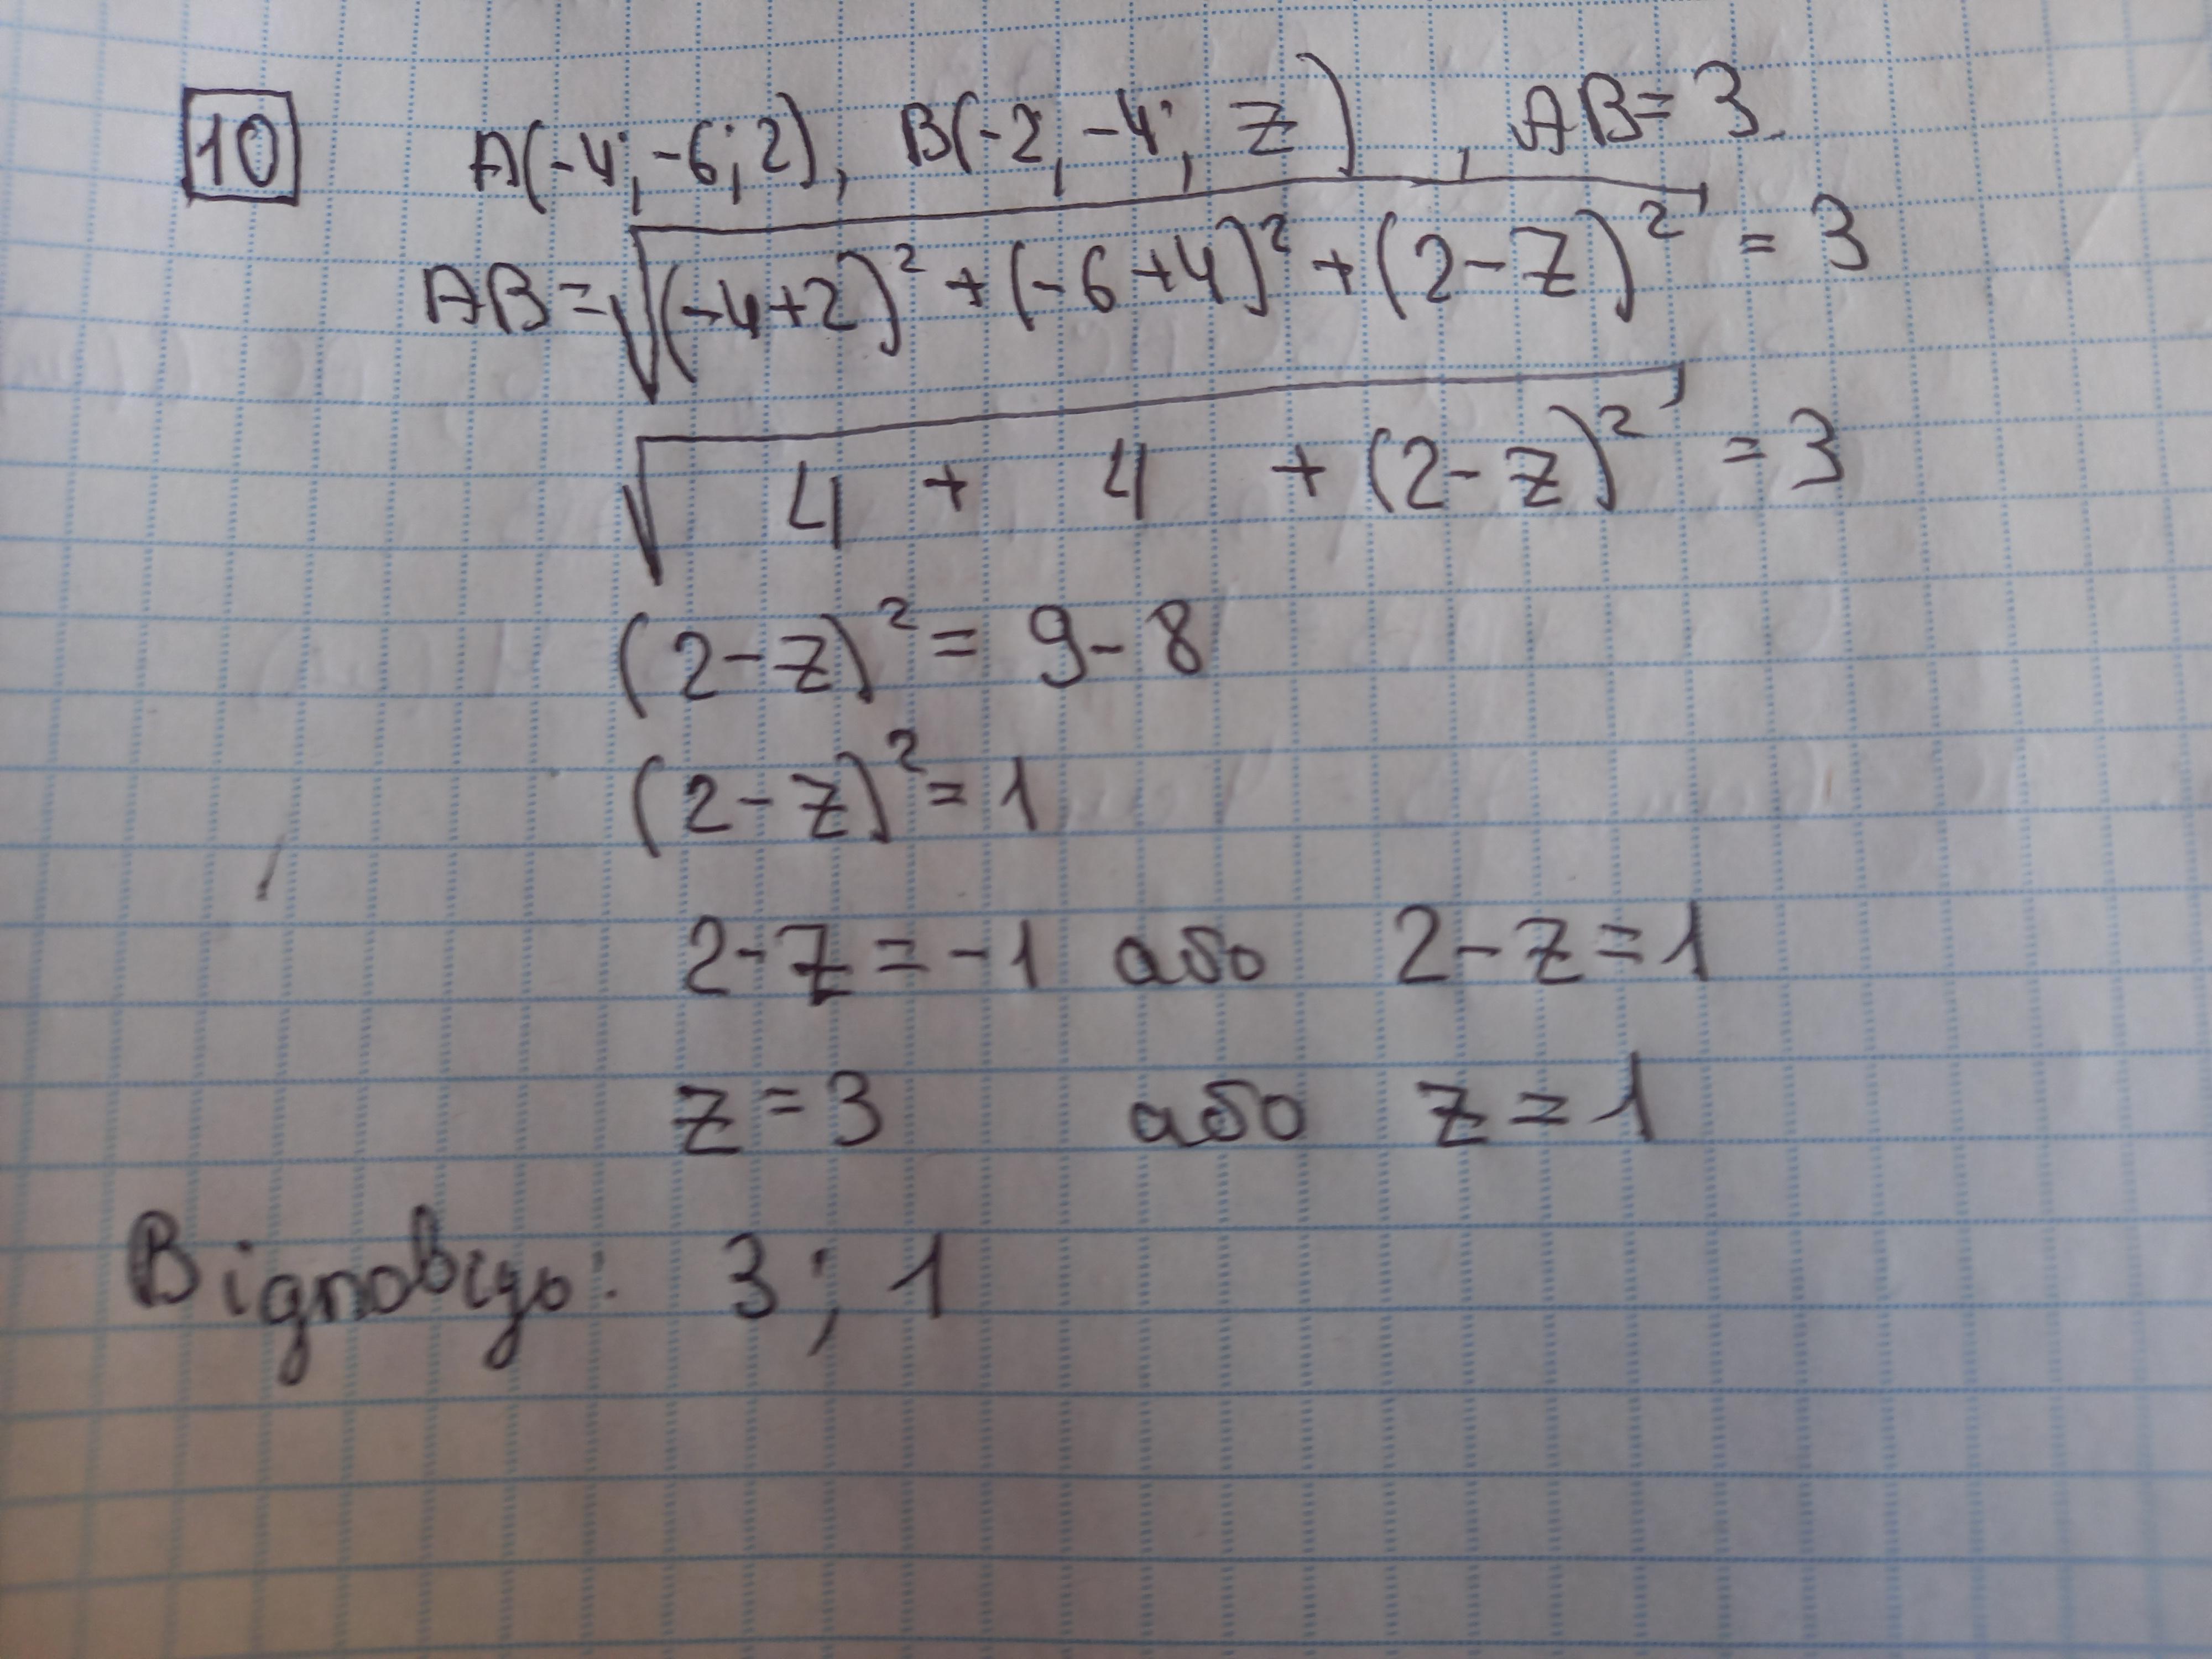 10 A(-4; -6; 2), B(-2; -4; z), AB=3.
AB=√((-4+2)²+(-6+4)²+(2-z)²) = 3
√(4 + 4 + (2-z)²) = 3
(2-z)² = 9-8
(2-z)² = 1
2-z = -1 або 2-z = 1
z = 3 або z = 1
Відповідь: 3; 1